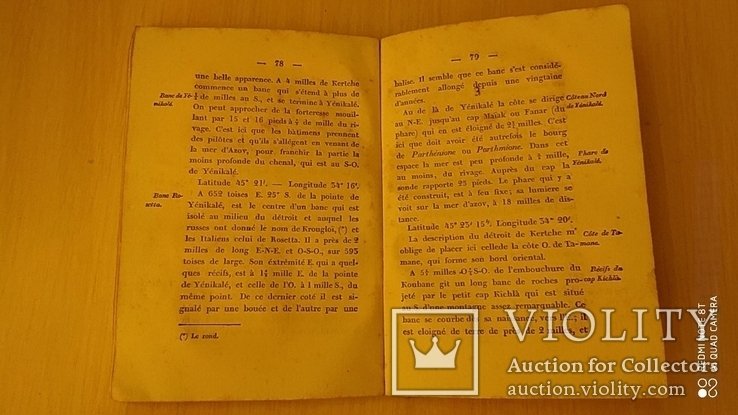 — 78 —
une belle apparence. A 4 milles de Kertche
commence un banc qui s'étend à plus de
Banc de Yé-
nikalé.
de milles au S., et se termine à Yénikalé.
On peut approcher de la forteresse mouil-
lant par 15 et 16 pieds à de mille du ri-
vage. C'est ici que les bâtimens prennent
des pilotes et qu'ils s'allégent en venant de
la mer d'Azov, pour franchir la partie la
moins profonde du chenal, qui est au S-O.
de Yénikalé.
Latitude 45° 21'. — Longitude 34° 16'.
Banc Ro-
setta.
A 652 toises E. 25° S. de la pointe de
Yénikalé, est le centre d'un banc qui est
isolé au milieu du détroit et auquel les
russes ont donné le nom de Krougloï, (*) et
les Italiens celui de Rosetta. Il a près de 2
milles de long E-N-E. et O-S-O., sur 593
toises de large. Son éxtrémité E. qui a quelq-
ues récifs, est à 1 mille E. de la pointe
de Yénikalé, et celle de l'O. à 1 mille S., du
même point. De ce dernier coté il est si-
gnalé par une bouée et de l'autre par une
(*) Le rond.
— 79 —
balise. Il semble que ce banc s'est considé-
rablement allongé depuis une vingtaine
d'années.
Au de là de Yénikalé la côte se dirige
Côteau Nord
de Yénikalé.
au N-E. jusqu'au cap Maïak ou Fanar (du
phare) qui en est éloigné de 2 milles. C'est
ici que doit avoir été autrefois le bourg
de Parthénione ou Parthmione. Dans cet
espace la mer est peu profonde à mille,
Phare de
Yénikalé.
au moins, du rivage. Auprès du cap la
sonde rapporte 25 pieds. Le phare qui y a
été construit, est à feu fixe; sa lumiere se
voit sur la mer d'azov, à 18 milles de dis-
tance.
Latitude 45° 23' 15". Longitude 34° 20'.
La description du détroit de Kertche m'
Côte de Ta-
mane.
oblige de placer ici celle de la côte O. de Ta-
mane, qui forme son bord oriental.
A 5 milles de l'embouchure du
Récifs du
cap Kichlà.
Koubane git un long banc de roches pro-
jeté par le petit cap Kichlà qui est situé
au S. d'une montagne assez remarquable. Ce
banc se courbe dès sa naissance, vers l'E.; il
est éloigné de terre de près de 2 milles, et
VIOLITY
Auction for Collectors
auction.violity.com
REDMI NOTE 8T
AI QUAD CAMERA